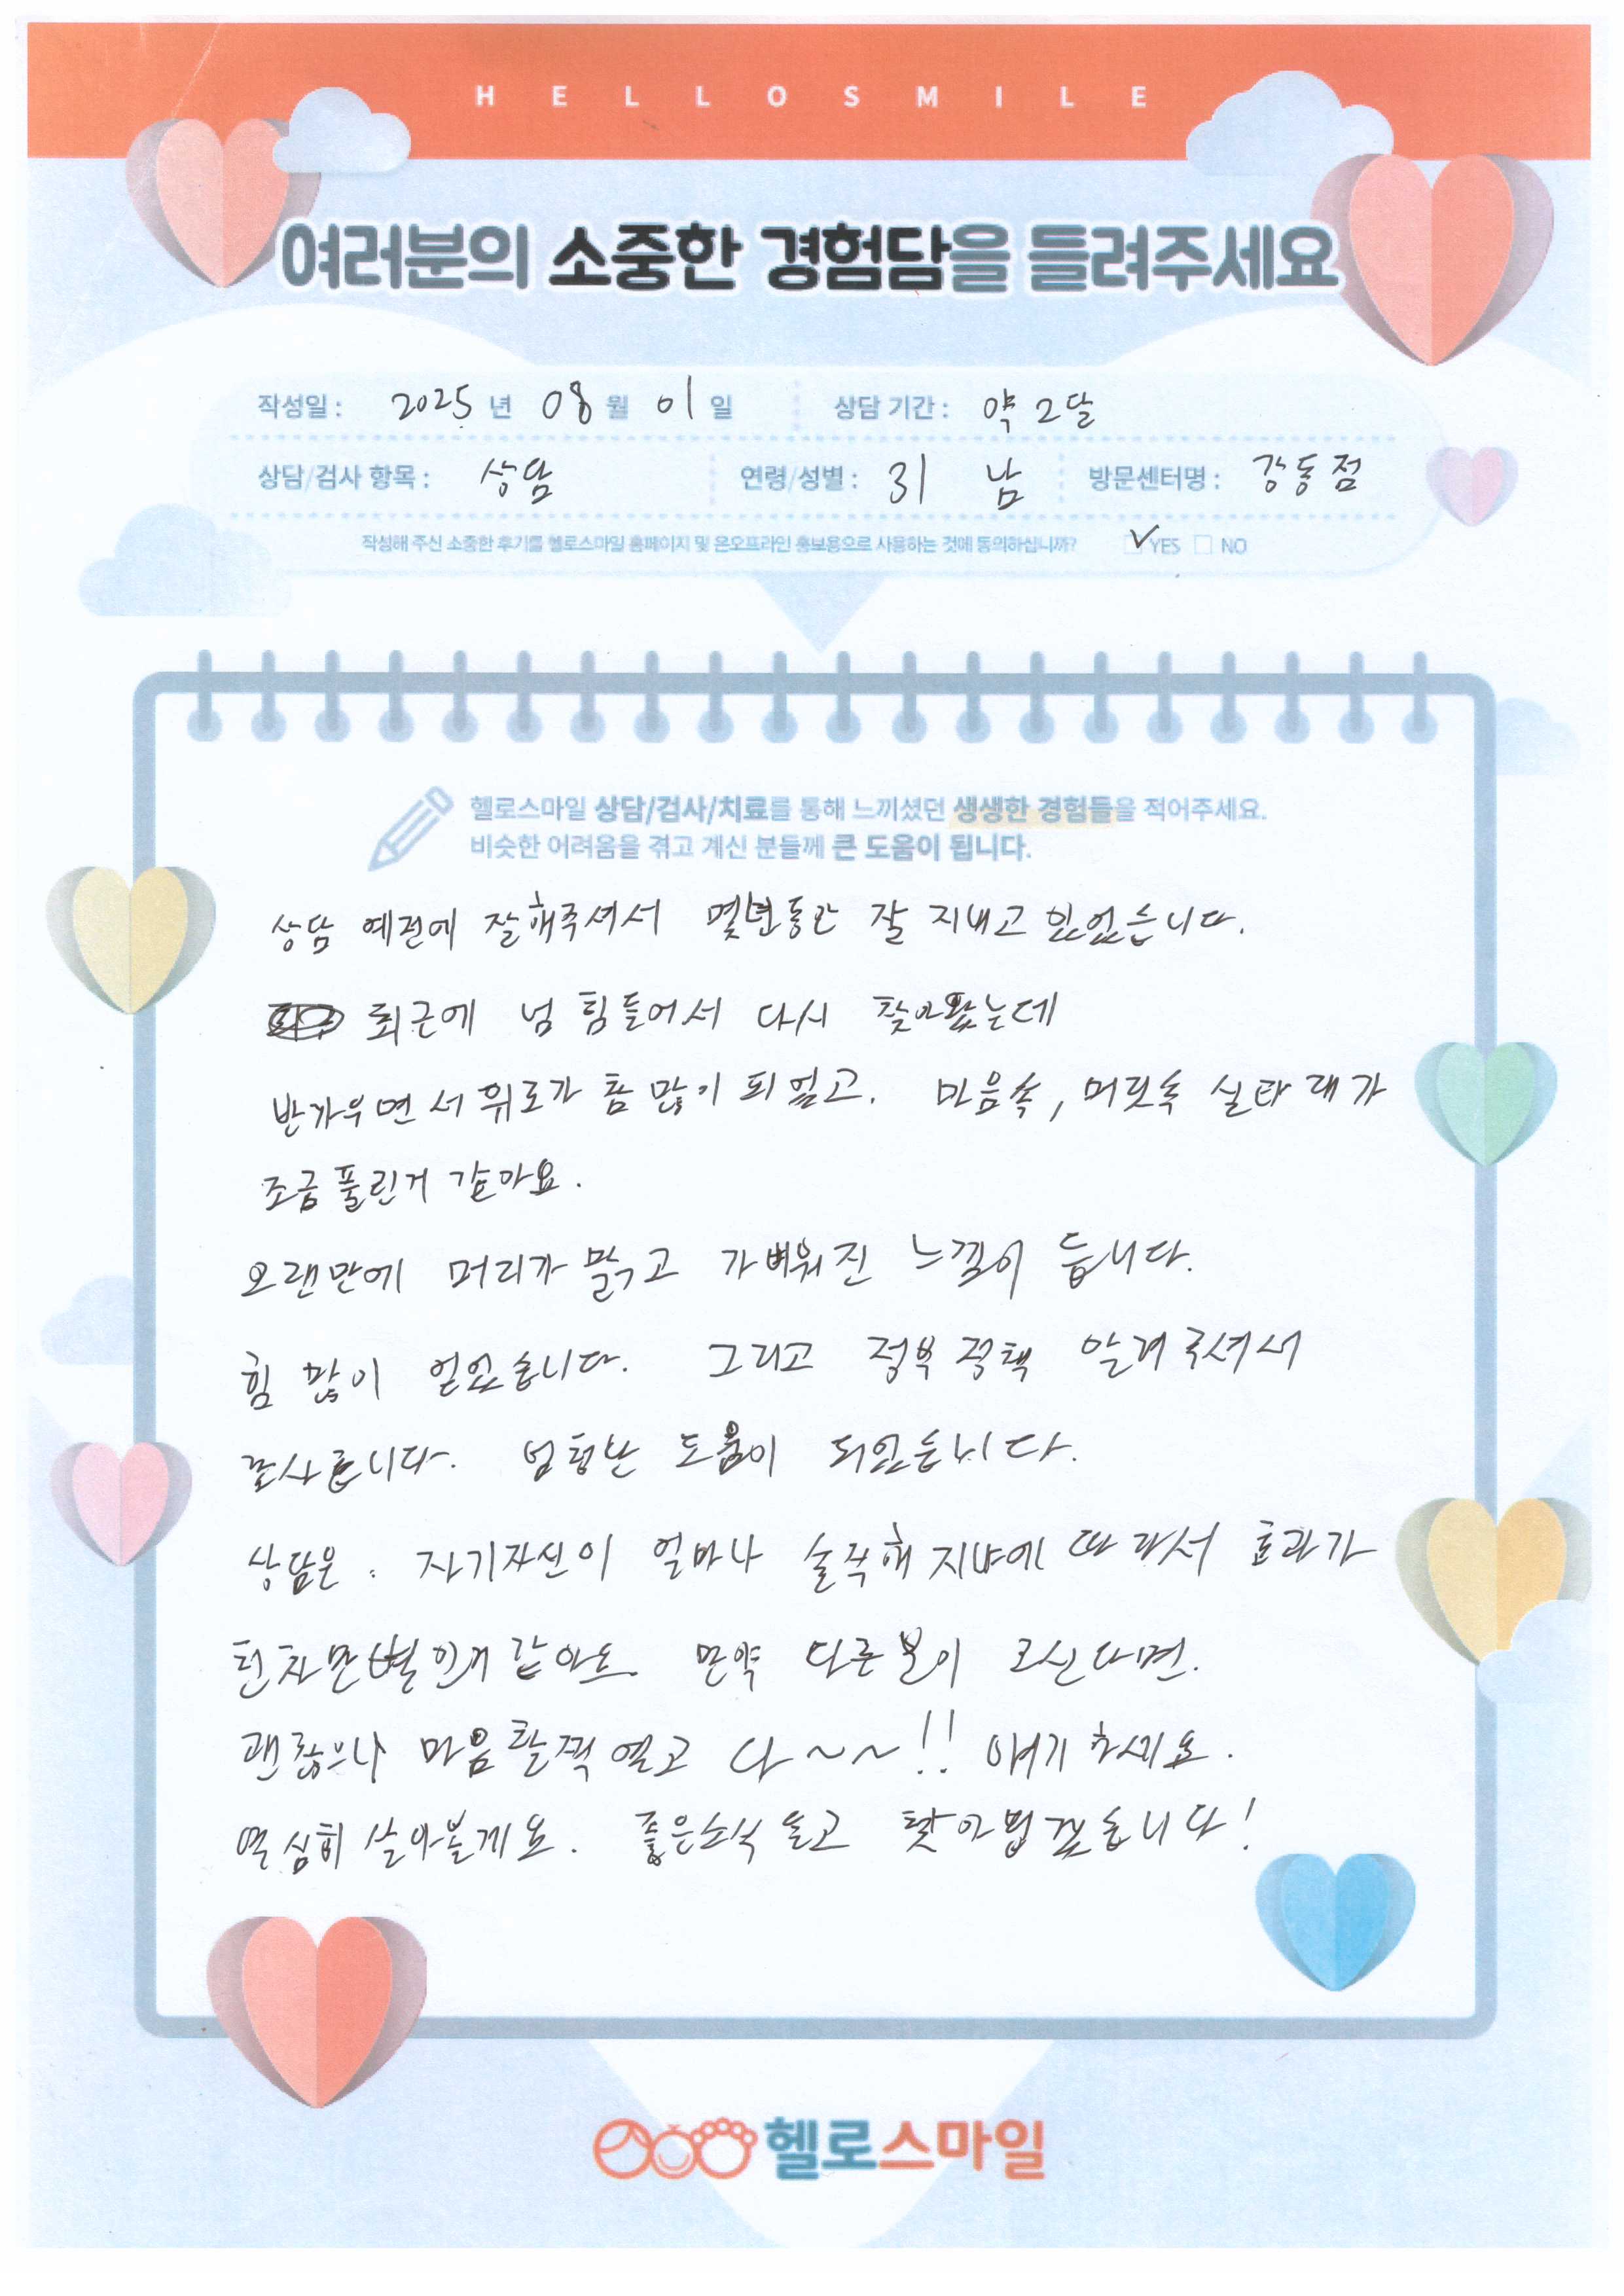 HELLOSMILE
여러분의 소중한 경험담을 들려주세요
작성일 : 2025 년 08 월 01 일 상담 기간 : 약 2달
상담/검사 항목 : 상담 연령/성별 : 31 남 방문센터명 : 강동점
작성해 주신 소중한 후기를 헬로스마일 홈페이지 및 온오프라인 홍보용으로 사용하는 것에 동의하십니까? YES NO
헬로스마일 상담/검사/치료를 통해 느끼셨던 생생한 경험들을 적어주세요.
비슷한 어려움을 겪고 계신 분들께 큰 도움이 됩니다.
상담 예전에 잘해주셔서 몇년동안 잘 지내고 있었습니다.
최근에 넘 힘들어서 다시 찾아왔는데
반가우면서 위로가 참 많이 되었고. 마음속, 머릿속 실타래가
조금 풀린거 같아요.
오랜만에 머리가 맑고 가벼워진 느낌이 듭니다.
힘 많이 얻었습니다. 그리고 정부정책 알려주셔서
감사합니다. 엄청난 도움이 되었습니다.
상담은. 자기자신이 얼마나 솔직해지냐에 따라서 효과가
천차만별인거 같아요. 만약 다른분이 오신다면.
괜찮으나 마음 활짝 열고 다~~!! 얘기하세요.
열심히 살아볼게요. 좋은소식 들고 찾아뵙겠습니다!
헬로스마일